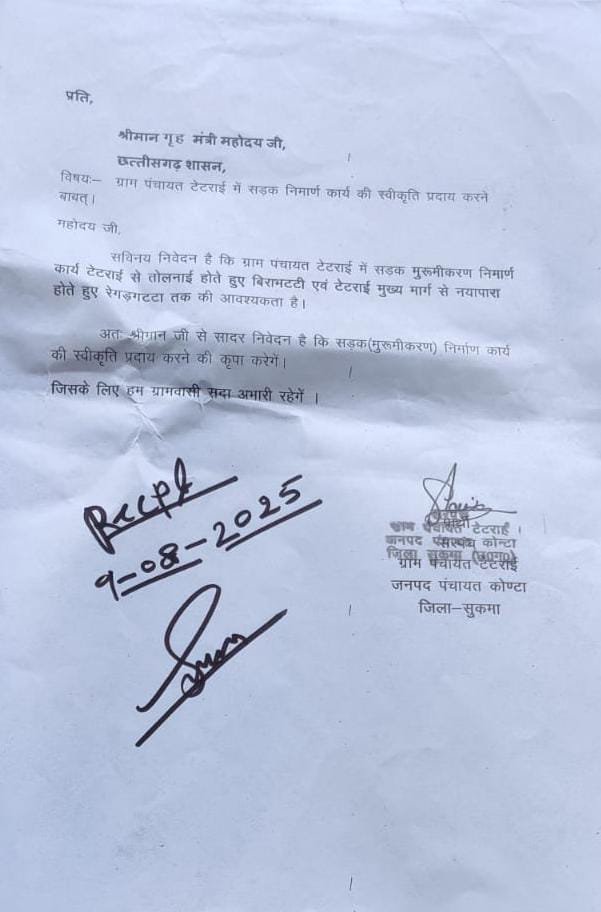 प्रति,
श्रीमान गृह मंत्री महोदय जी,
छत्तीसगढ़ शासन,
विषयः– ग्राम पंचायत टेटराई में सड़क निमार्ण कार्य की स्वीकृति प्रदाय करने
बाबत्।
महोदय जी,
सविनय निवेदन है कि ग्राम पंचायत टेटराई में सड़क मुरूमीकरण निमार्ण
कार्य टेटराई से तोलनाई होते हुए बिरामटटी एवं टेटराई मुख्य मार्ग से नयापारा
होते हुए रेगड़गटटा तक की आवश्यकता है।
अतः श्रीमान जी से सादर निवेदन है कि सड़क(मुरूमीकरण) निर्माण कार्य
की स्वीकृति प्रदाय करने की कृपा करेगें।
जिसके लिए हम ग्रामवासी सदा अभारी रहेगें ।
Recpt
9-08-2025
सरपंच
ग्राम पंचायत टेटराई ।
जनपद पंचायत कोन्टा
जिला सुकमा (छ0ग0)
सरपंच
ग्राम पंचायत टेटराई
जनपद पंचायत कोण्टा
जिला–सुकमा